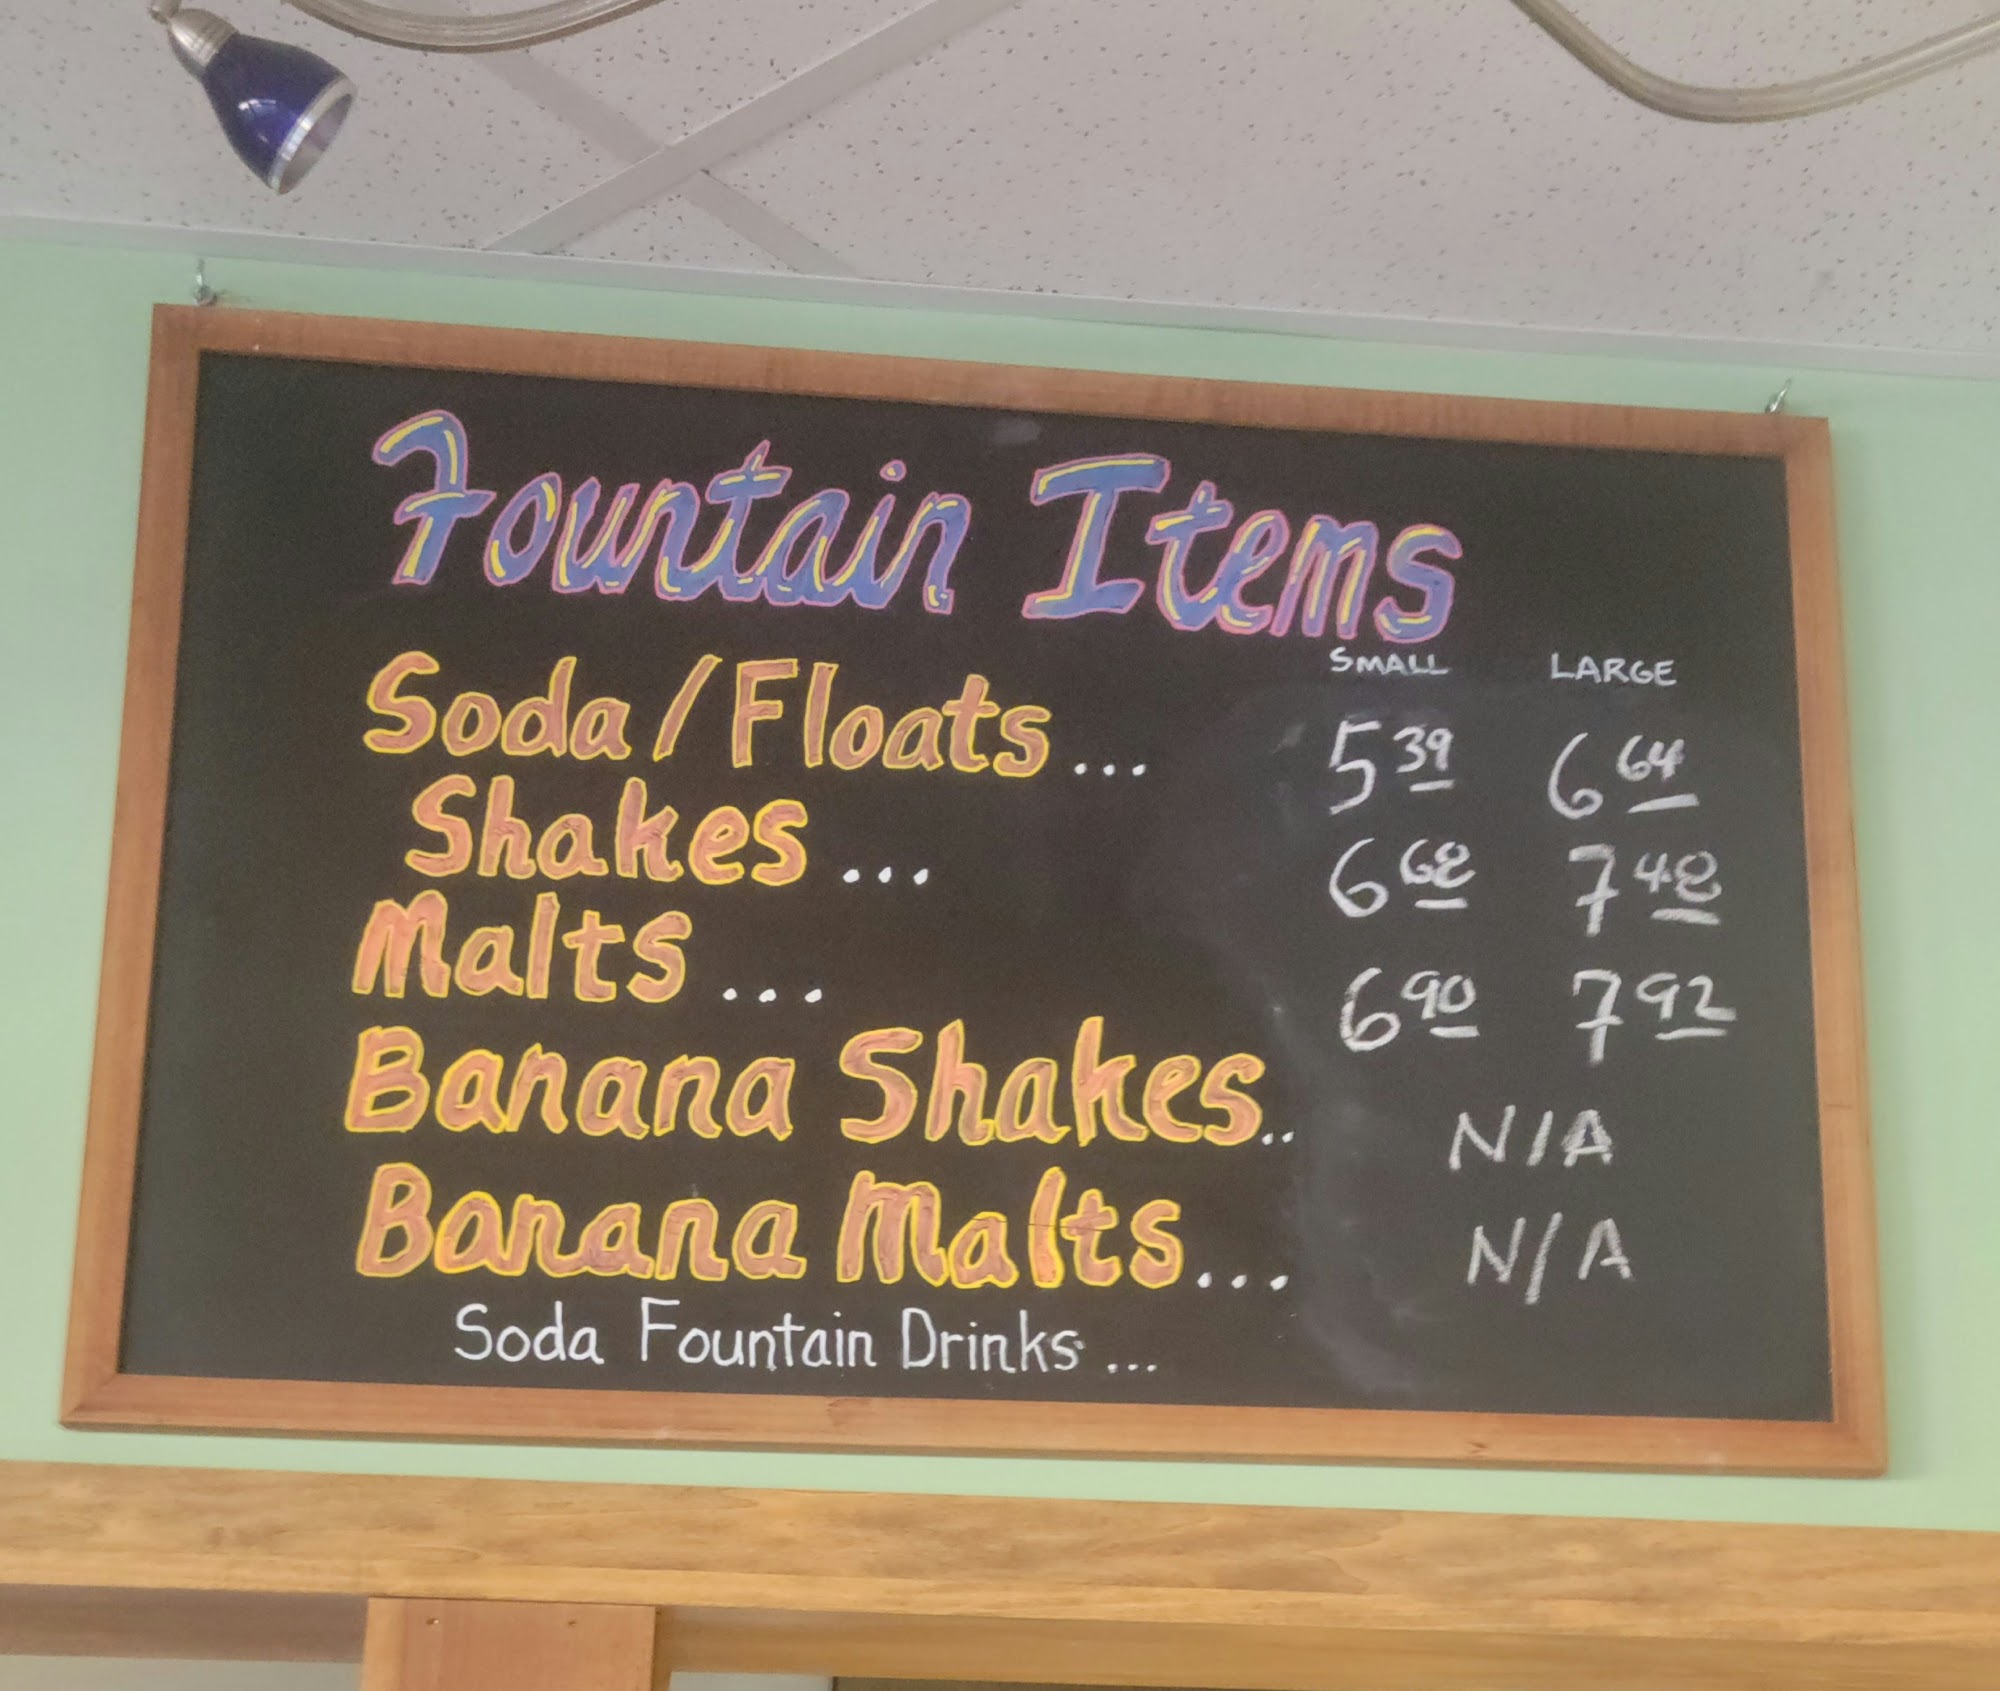 Fountain Items
SMALL LARGE
Soda/Floats... 5 39 6 64
Shakes... 6 68 7 48
Malts... 6 90 7 92
Banana Shakes.. N/A
Banana Malts... N/A
Soda Fountain Drinks...